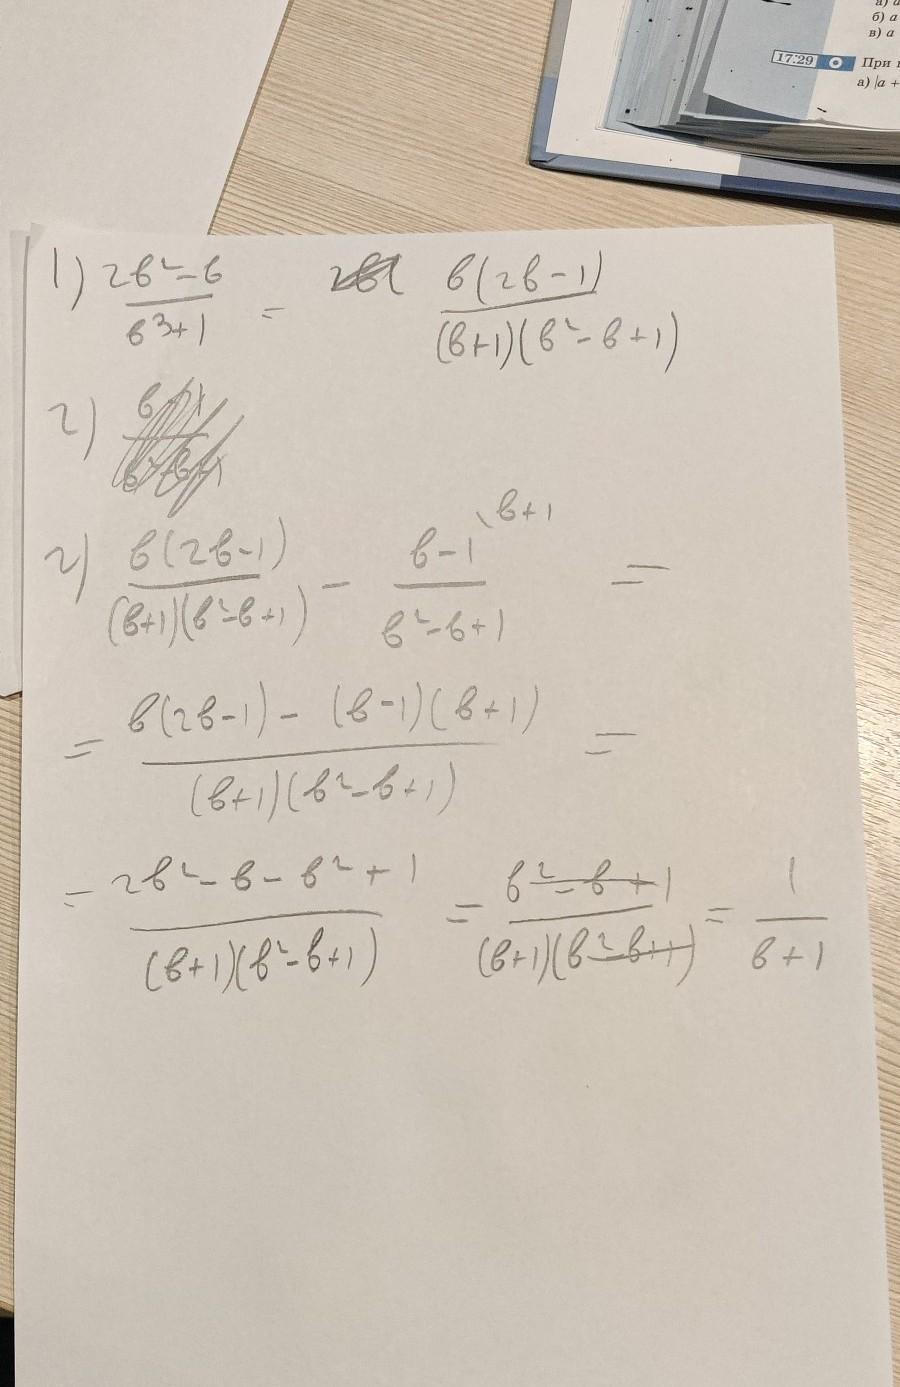 а) a
б) a
в) a
17.29 При
а) |a +
1) (2b² - b)/(b³ + 1) = b(2b - 1)/((b + 1)(b² - b + 1))
2)
2) b(2b - 1)/((b + 1)(b² - b + 1)) - (b - 1)/(b² - b + 1) \b + 1 =
= (b(2b - 1) - (b - 1)(b + 1))/((b + 1)(b² - b + 1)) =
= (2b² - b - b² + 1)/((b + 1)(b² - b + 1)) = (b² - b + 1)/((b + 1)(b² - b + 1)) = 1/(b + 1)